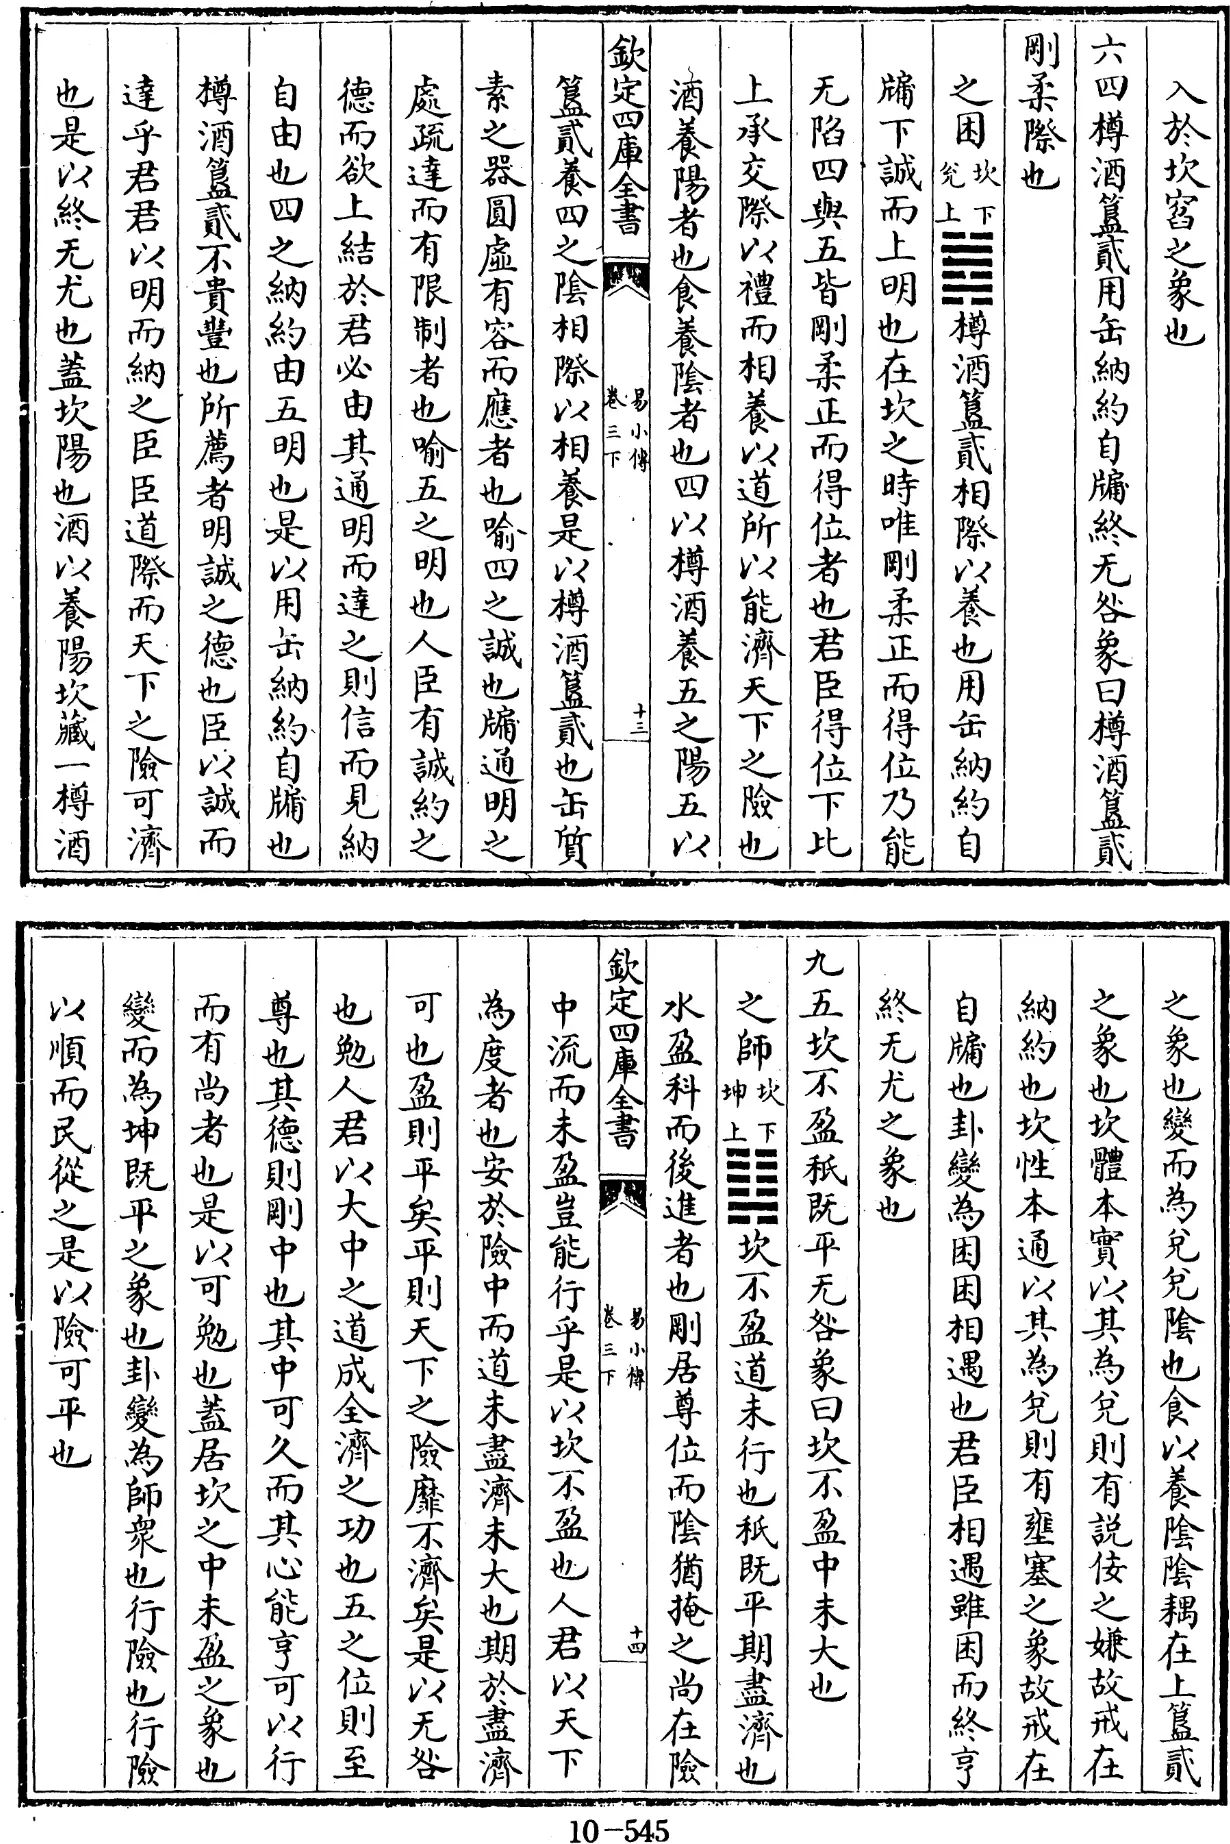 入於坎窞之象也
六四樽酒簋貳用缶納約自牖終无咎象曰樽酒簋貳
剛柔際也
之困坎下兌上䷮樽酒簋貳相際以養也用缶納約自
牖下誠而上明也在坎之時唯剛柔正而得位乃能
无陷四與五皆剛柔正而得位者也君臣得位下比
上承交際以禮而相養以道所以能濟天下之險也
酒養陽者也食養陰者也四以樽酒養五之陽五以
欽定四庫全書 易小傳卷三下 十三
簋貳養四之陰相際以相養是以樽酒簋貳也缶質
素之器圓虛有容而應者也喻四之誠也牖通明之
處疏達而有限制者也喻五之明也人臣有誠約之
德而欲上結於君必由其通明而達之則信而見納
自由也四之納約由五明也是以用缶納約自牖也
樽酒簋貳不貴豐也所薦者明誠之德也臣以誠而
達乎君君以明而納之臣臣道際而天下之險可濟
也是以終无尤也蓋坎陽也酒以養陽坎藏一樽酒
之象也變而為兌兌陰也食以養陰陰耦在上簋貳
之象也坎體本實以其為兌則有説佞之嫌故戒在
納約也坎性本通以其為兌則有壅塞之象故戒在
自牖也卦變為困困相遇也君臣相遇雖困而終亨
終无尤之象也
九五坎不盈祇既平无咎象曰坎不盈中未大也
之師坎下坤上䷆坎不盈道未行也祇既平期盡濟也
水盈科而後進者也剛居尊位而陰猶掩之尚在險
欽定四庫全書 易小傳卷三下 十四
中流而未盈豈能行乎是以坎不盈也人君以天下
為度者也安於險中而道未盡濟未大也期於盡濟
可也盈則平矣平則天下之險靡不濟矣是以无咎
也勉人君以大中之道成全濟之功也五之位則至
尊也其德則剛中也其中可久而其心能亨可以行
而有尚者也是以可勉也蓋居坎之中未盈之象也
變而為坤既平之象也卦變為師衆也行險也行險
以順而民從之是以險可平也
10-545